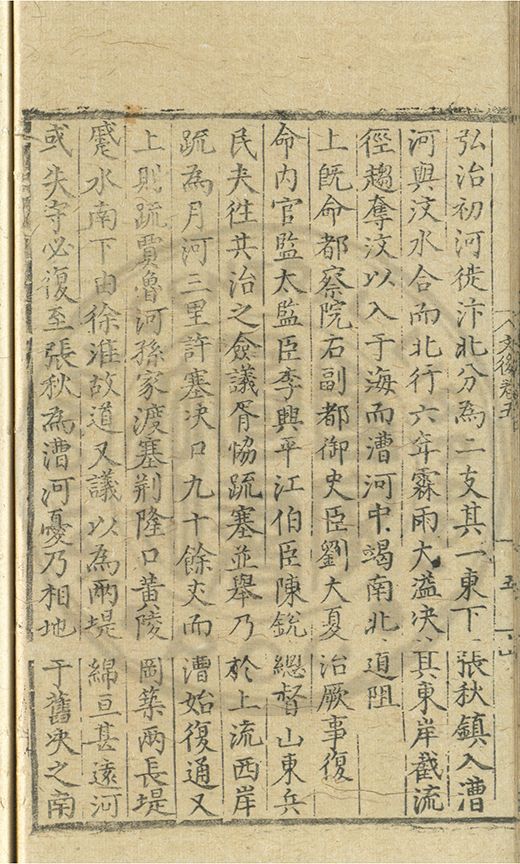 弘治初河徙汴北分為二支其一東下張秋鎮入漕
河與汶水合而北行六年霖雨大溢决其東岸截流
徑趨奪汶以入于海而漕河中竭南北道阻
上旣命都察院右副都御史臣劉大夏治厥事復
命内官監太監臣李興平江伯臣陳銳緫督山東兵
民夫徃共治之僉議胥恊䟽塞並舉乃於上流西岸
䟽為月河三里許塞决口九十餘丈而漕始復通又
上則䟽賈魯河孫家渡塞荆隆口黄陵岡築兩長堤
蹙水南下由徐淮故道又議以為兩堤綿亘甚遠河
或失守必復至張秋為漕河憂乃相地于舊决之南